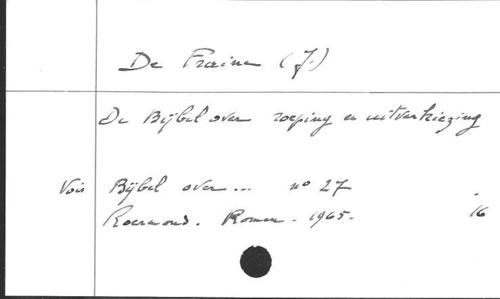 De Fraine (J.)
De Bijbel over roeping en uitverkiezing
Vois Bijbel over... no 27
Roermond. Romen. 1965. 16